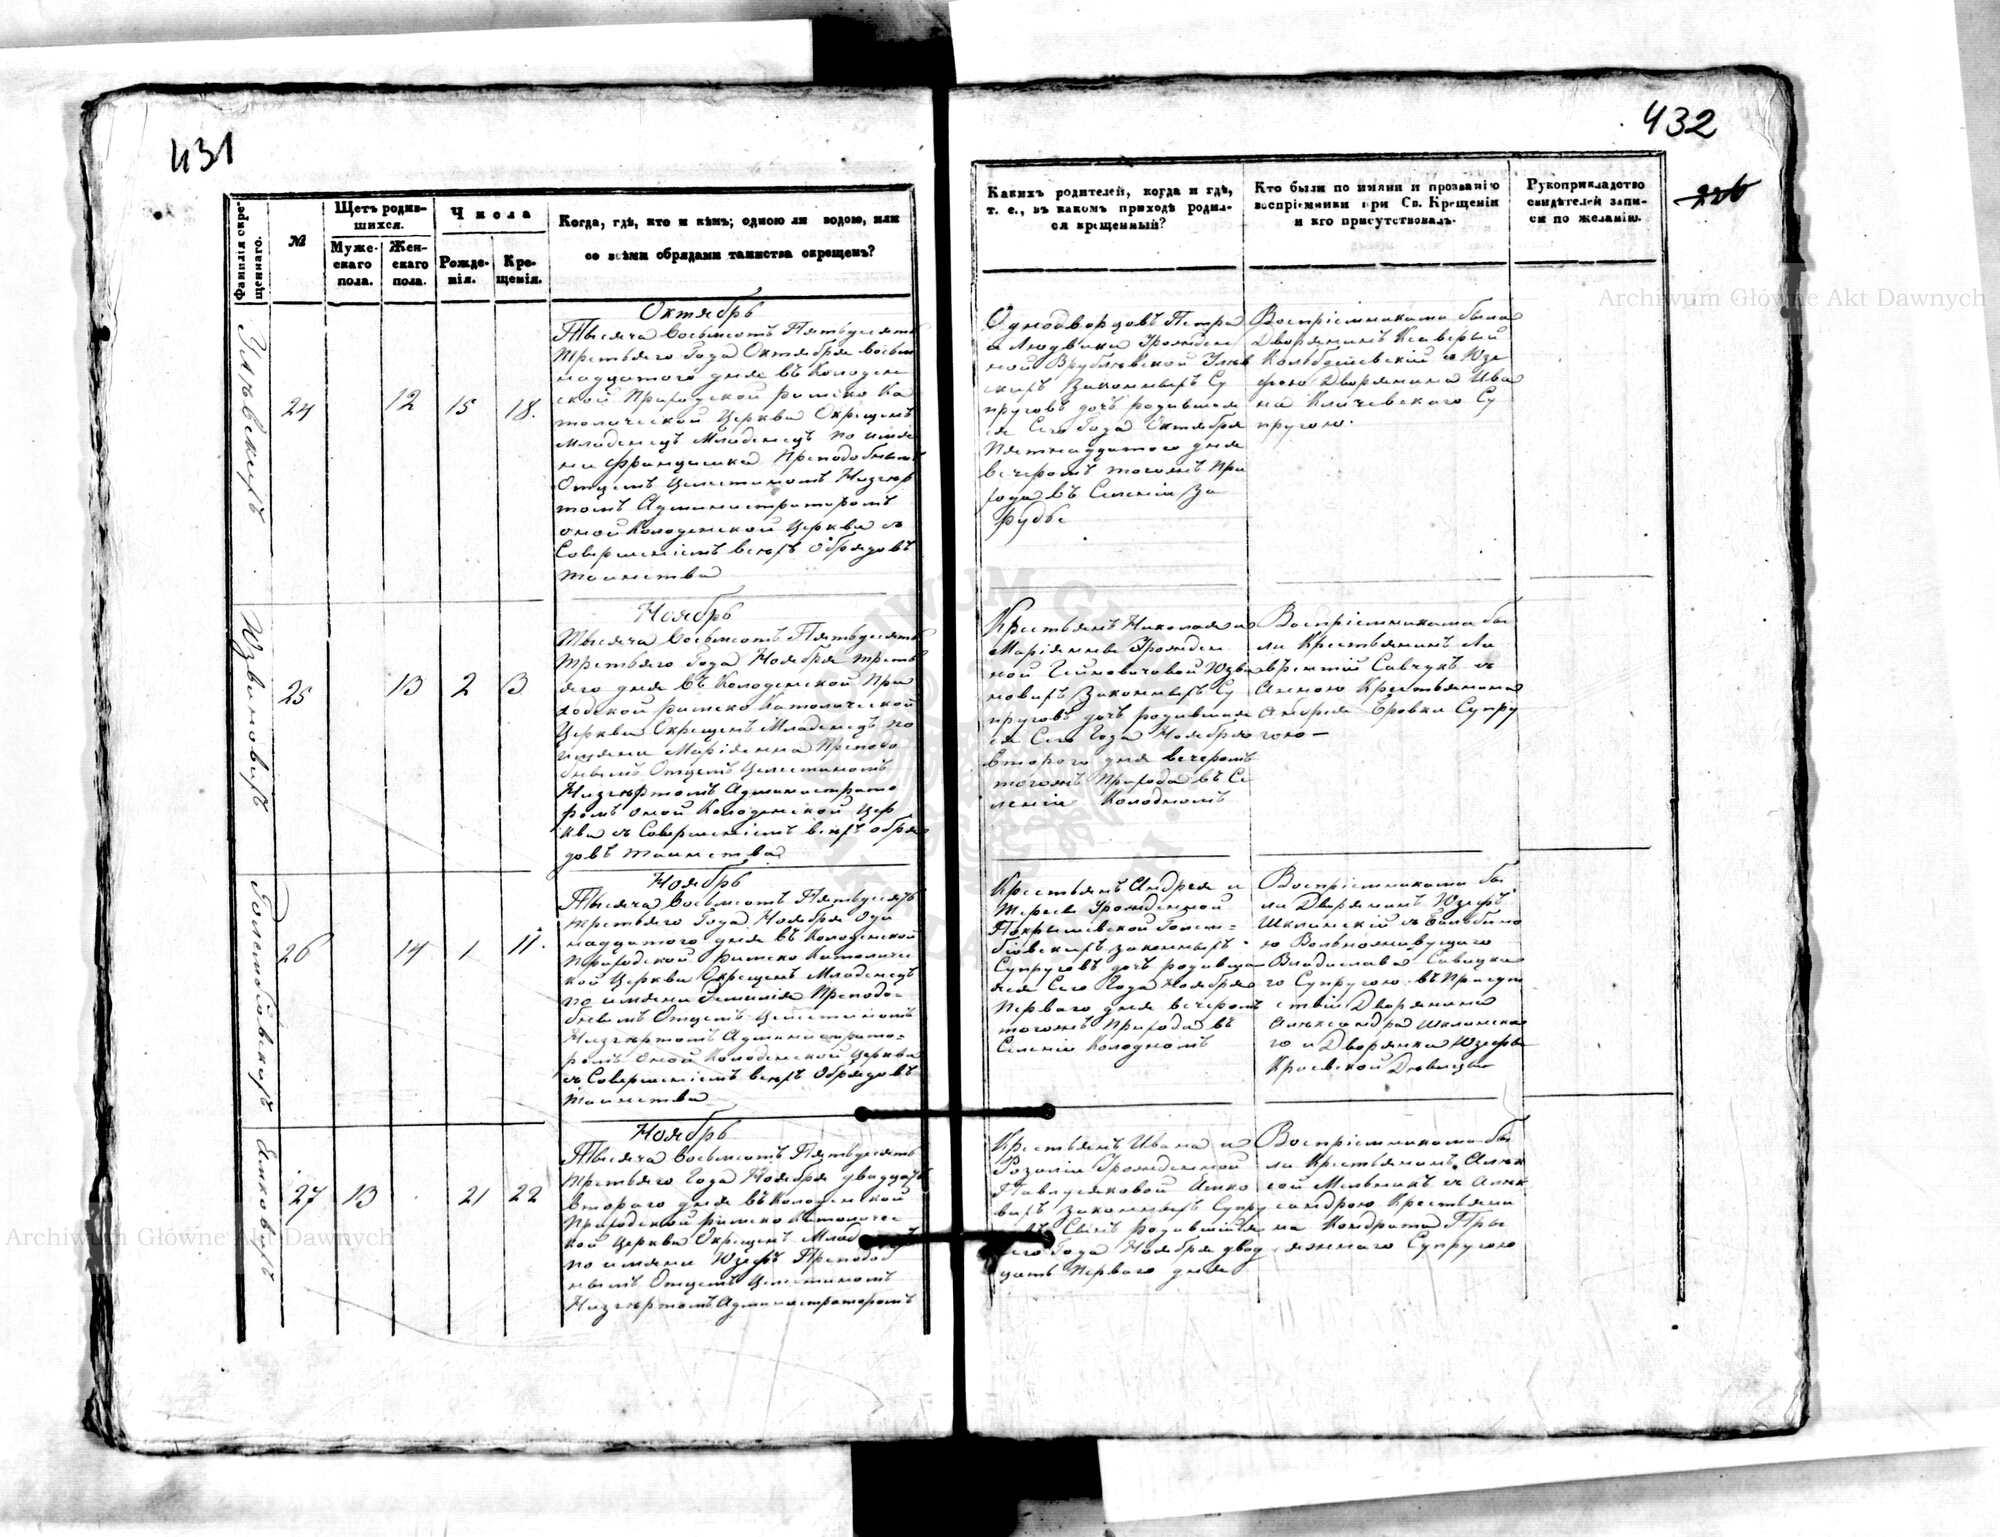 431
Фамилія окре-
щеннаго.
№
Щетъ родив-
шихся.
Муже-
скаго
пола.
Жен-
скаго
пола.
Числа
Рожде-
нія.
Кре-
щенія.
Когда, гдѣ, кто и кѣмъ; одною ли водою, или
со всѣми обрядами таинства окрещенъ?
24
12
15
18.
Октябрь
Тысяча Восьмсотъ Пятьдесятъ
Третьяго Года Октября восьм
надцатого дня въ Колоден
ской Приходской Римско Ка
толической Церкви Окрещенъ
Младенецъ Младенецъ по имя
ни Францишка Преподобнымъ
Отцемъ Целестиномъ
томъ Администраторомъ
оной Колоденской Церкви съ
Совершеніемъ всѣхъ Обрядовъ
таинства
25
13
2
3
Ноябрь
Тысяча Восьмсотъ Пятьдесятъ
Третьяго Года Ноября треть
яго дня въ Колоденской При
ходской Римско Католической
Церкви Окрещенъ Младенецъ по
имяни Маріянна Преподо
бнымъ Отцемъ Целестиномъ
Администрато
ромъ оной Колоденской Цер
кви съ Совершеніемъ всѣхъ обря
довъ таинства
Голембіовскихъ
26
14
1
11.
Ноябрь
Тысяча Восьмсотъ Пятьдесятъ
третьяго Года Ноября Оди
надцатого дня въ Колоденской
Приходской Римско Католичес
кой Церкви Окрещенъ Младенецъ
по имяни Емилія Преподо-
бнымъ Отцемъ Целестиномъ
Администрато-
ромъ Оной Колоденской Церкви
съ Совершеніемъ всѣхъ Обрядовъ
таинства
27
13
21
22
Ноябрь
Тысяча Восьмсотъ Пятьдесятъ
Третьяго Года Ноября двадцать
Втораго дня въ Колоденской
Приходской Римско Католичес
кой Церкви Окрещенъ
по имяни Юзефъ Преподоб
нымъ Отцемъ Целестиномъ
Администраторомъ
432
Какихъ родителей, когда и гдѣ,
т. е., въ какомъ приходѣ родил-
ся крещенный?
Кто были по имяни и прозванію
воспріемники при Св. Крещеніи
и кто присутствовалъ.
Рукоприкладство
свидѣтелей запи-
си по желанію.
Однодворцовъ Петра
и Людвики Урожден
ной Врублевской
скихъ Законныхъ Су
пруговъ дочь родившая
ся Сего Года Октября
Пятнадцатого дня
вечеромъ тогожъ При
хода въ Селеніи За
рудье
Воспріемниками были
Дворянинъ Ксаверый
съ Юзе
фою Дворянина Ива
на Клічевского Су
пругою.
Крестьянъ Николая и
Маріянны Урожден
ной
новихъ Законныхъ Су
пруговъ дочь родившая
ся Сего Года Ноября
втораго дня вечеромъ
тогожъ Прихода въ Се
леніи Колодномъ
Воспріемниками бы
ли Крестьянинъ Ла
врентій Савчукъ съ
Анною Крестьянина
Андрея Бровки Супру
гою-
Крестьянъ Андрея и
Тересы Урожденной
Покрышевской Голем-
біовскихъ законныхъ
Супруговъ дочь родивша
яся Сего Года Ноября
Перваго дня вечеромъ
тогожъ Прихода въ
Селеніи Колодномъ
Воспріемниками бы
ли Дворянинъ Юзефъ
Шклинскій съ
ю Вольноживущаго
Владислава Савицка
го Супругою въ Присут
ствіи Дворянина
Александра Шклинска
го и Дворянки Юзефы
Краевской Дѣвицы
Крестьянъ Ивана и
Розаліи Урожденной
Павлусяковой
выхъ законныхъ Супру
Сынъ родившійся
Сего Года Ноября двад
цать Перваго дня
Воспріемниками бы
ли Крестьянинъ Алек
сей Мельникъ съ Алек
сандрою Крестьяни
на Кондрата При
Супругою
Archiwum Główne Akt Dawnych
Archiwum Główne Akt Dawnych